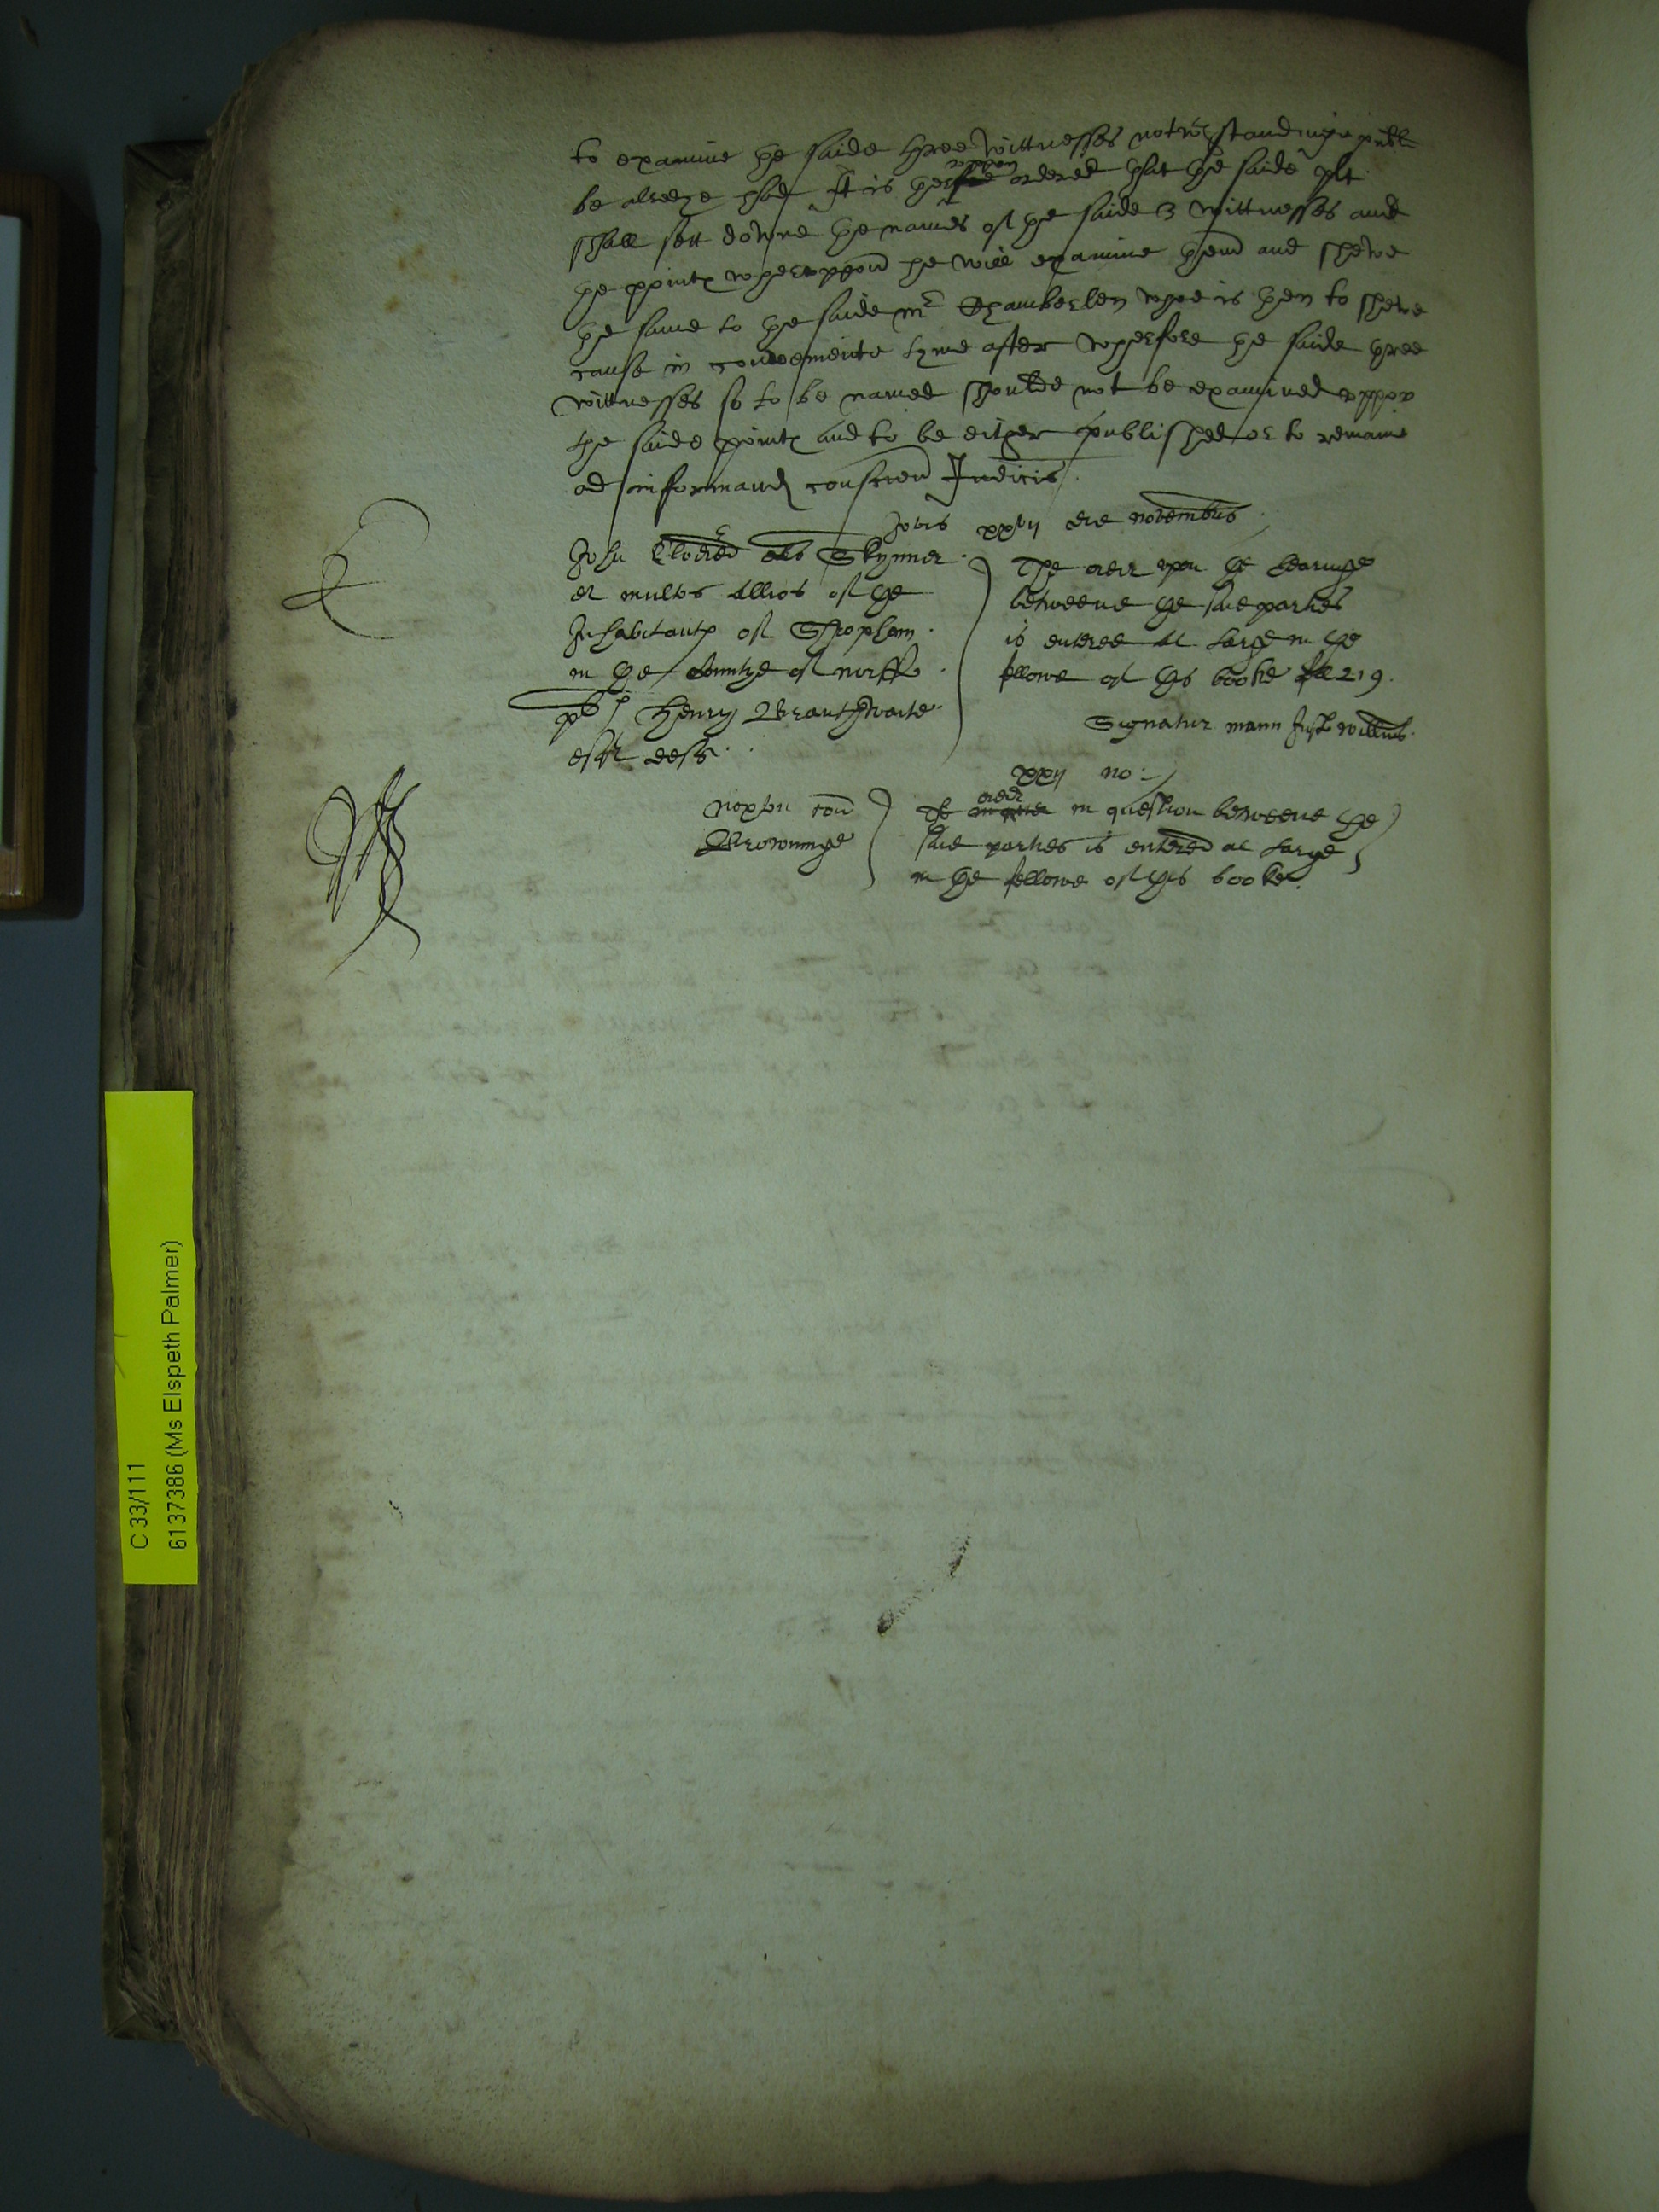 to examine the saide three wittnesses notwthstandinge publ
be alredye had It is therevppon ordered that the saide plt
shall sett downe the names of the saide 3 wittnesses and
the pointes wherevppon he will examine them and shewe
the same to the saide mr Chamberlen whoe is then to shewe
cause in conveniente tyme after wherefore the saide three
wittnesses so to be named shoulde not be examined vppon
the saide pointes and to be either published or to remaine
ad informand conscien Judicis
Jovis xxvij die novembris
John als Skynner
et multos allios of the
Inhabitantes of Shropham
in the Countye of norff
Henry Branthwaite
The order vpon the hearinge
betweene the said parties
is entred at large in the
fellowe of this booke fol 219.
Signatur mann
xxij no:
order
Noxton con
Browninge
The matter in question betweene the
said parties is entred at large
in the fellowe of this booke.
C 33/111
6137386 (Ms Elspeth Palmer)